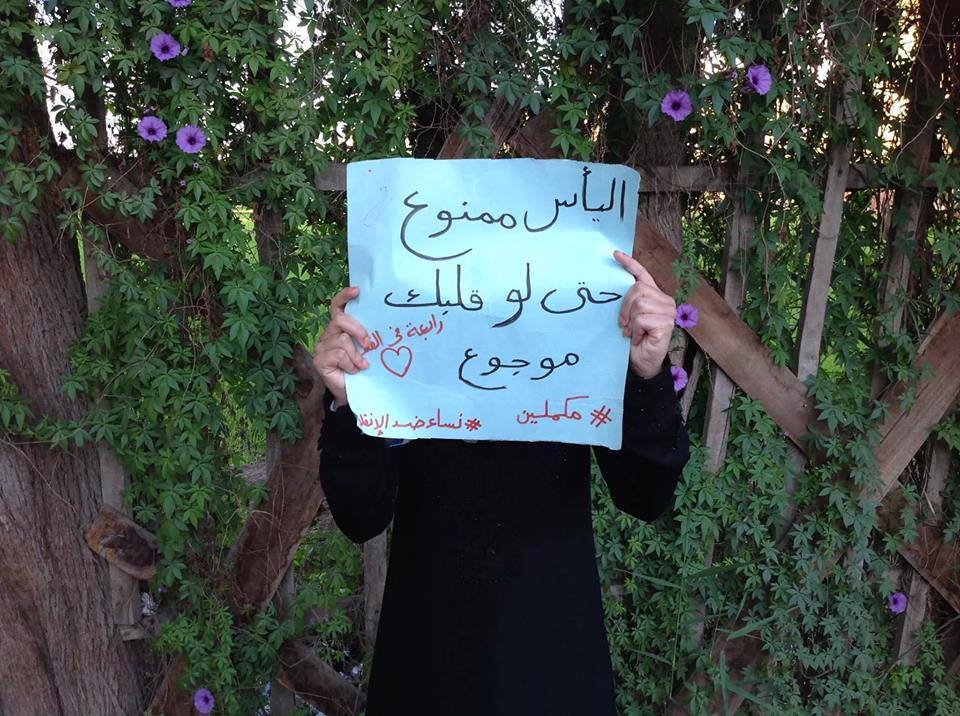 اليأس ممنوع
حتى لو قلبك
موجوع
رابعة في
#مكملين
#نساء ضد